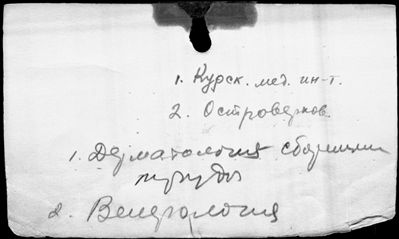 1. Курск. мед. ин-т.
2. Островерхов.
1. Дерматология сборники
труды
2. Венерология